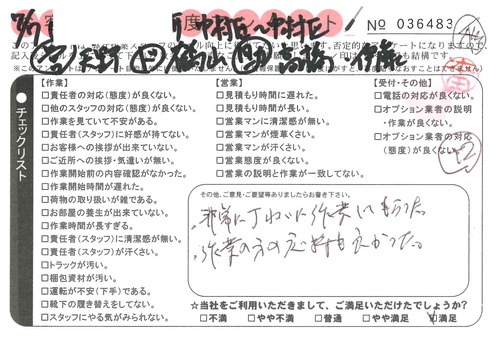 No 036483
チェックリスト
【作業】
□責任者の対応(態度)が良くない。
□他のスタッフの対応(態度)が良くない。
□作業を見ていて不安がある。
□責任者(スタッフ)に好感が持てない。
□お客様への挨拶が出来ていない。
□ご近所への挨拶・気遣いが無い。
□作業開始前の内容確認がなかった。
□作業開始時間が遅れた。
□荷物の取り扱いが雑である。
□お部屋の養生が出来ていない。
□作業時間が長すぎる。
□責任者(スタッフ)に清潔感が無い。
□責任者(スタッフ)が汗くさい。
□トラックが汚い。
□梱包資材が汚い。
□運転が不安(下手)である。
□靴下の履き替えをしてない。
□スタッフにやる気がみられない。
【営業】
□見積もり時間に遅れた。
□見積もり時間が長い。
□営業マンに清潔感が無い。
□営業マンが煙草くさい。
□営業マンが汗くさい。
□営業態度が良くない。
□営業の説明と作業が一致してない。
【受付・その他】
□電話の対応が良くない。
□オプション業者の説明
・作業が良くない。
□オプション業者の対応
(態度)が良くない。
その他、ご意見・ご要望等ありましたらお書き下さい。
非常に丁ねいに作業してもらった。
作業の方の応対も良かった。
☆当社をご利用いただきまして、ご満足いただけたでしょうか?
□不満 □やや不満 □普通 □やや満足 □満足